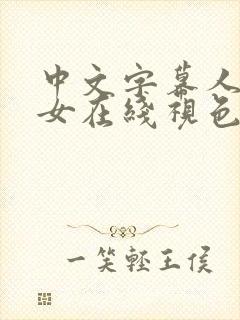 中文字幕人
女在綫視色
一笑輕王侯